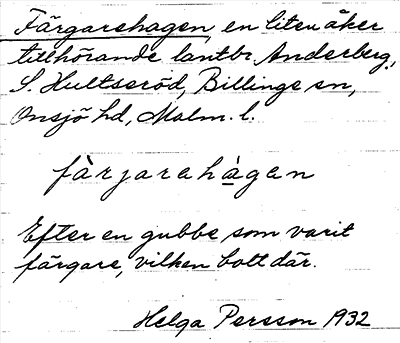 Färgarehagen, en liten åker
tillhörande lantbr. Anderberg,
S. Hultseröd, Billinge sn,
Onsjö hd, Malm. l.
fà̀rjarehàgen
Efter en gubbe, som varit
färgare, vilken bott där.
Helga Persson 1932